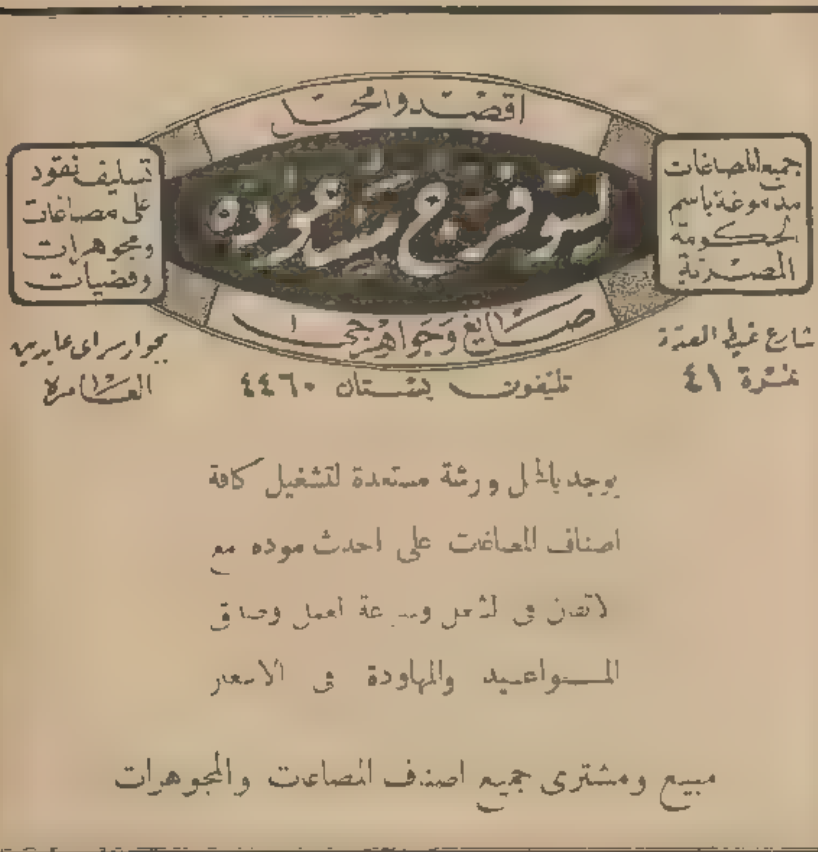 اقصدوا محل
جميع المصاغات
مدموغة باسم
الحكومة
المصرية
ليتو فرج مسعوده
تسليف نقود
على مصاغات
ومجوهرات
وفضيات
صايغ وجواهرجى
شارع غيط العدة
نمرة ٤١
تليفون بستان ٤٤٦٠
بجوار سراى عابدين
العامرة
يوجد بالمحل ورشة مستعدة لتشغيل كافة
اصناف المصاغات على احدث موده مع
الاتقان فى الشغل وسرعة العمل وصدق
المواعيد والمهاودة فى الاسعار
مبيع ومشترى جميع اصناف المصاغات والمجوهرات